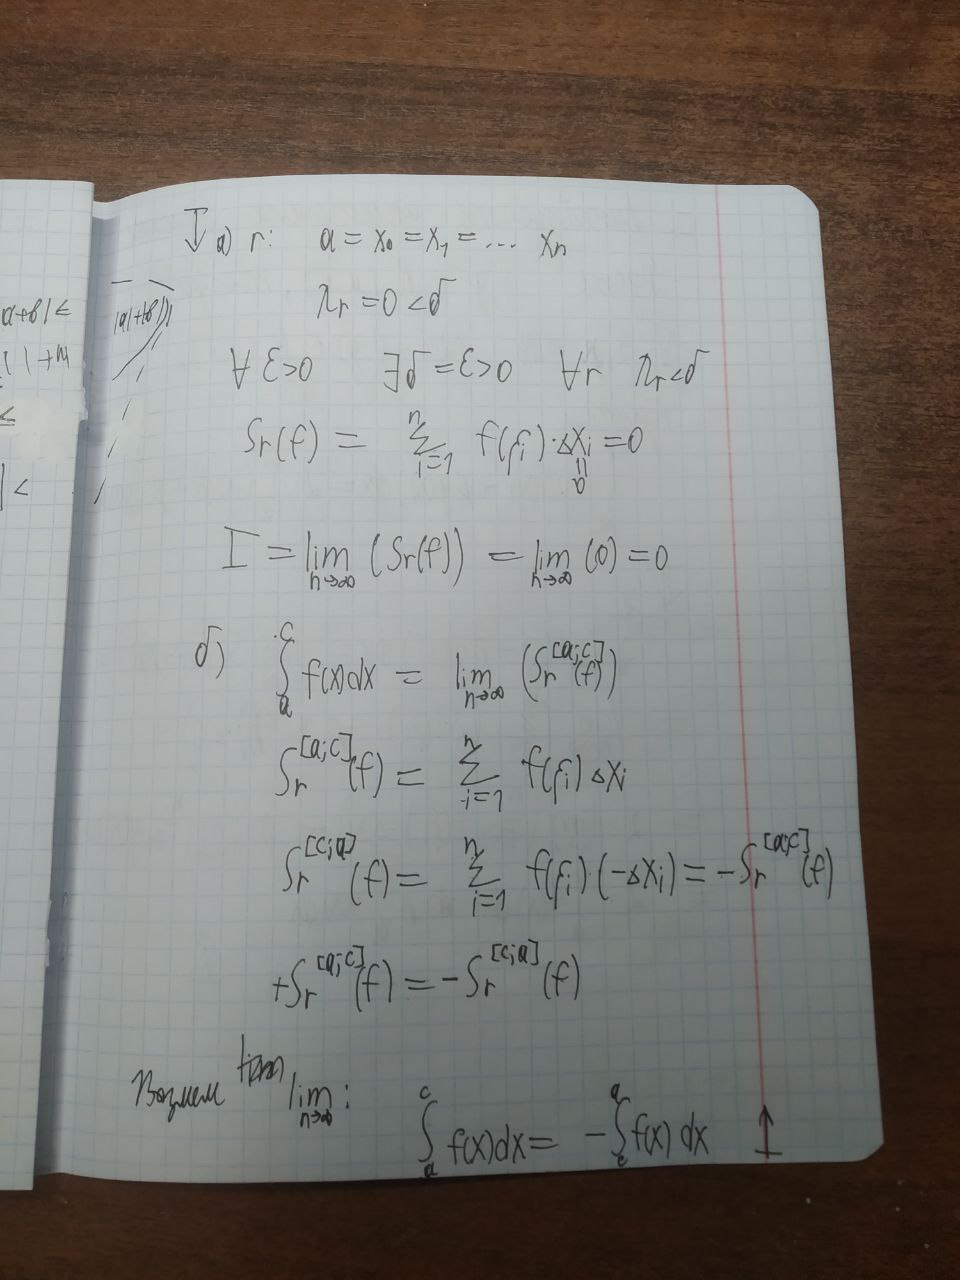 a+b| <
|a|+|b|)|
↧ a) r: a = x₀ = x₁ = ... xₙ
λr = 0 < δ
∀ ε>0 ∃δ = ε>0 ∀r λr<δ
Sr(f) = ∑ⁿᵢ₌₁ f(ξᵢ)·Δxᵢ = 0
0
I = lim n→∞ (Sr(f)) = lim n→∞ (0) = 0
б) ∫ₐᶜ f(x)dx = lim n→∞ (Sr^[a;c](f))
Sr^[a;c](f) = ∑ⁿᵢ₌₁ f(ξᵢ)Δxᵢ
Sr^[c;a](f) = ∑ⁿᵢ₌₁ f(ξᵢ)·(-Δxᵢ) = -Sr^[a;c](f)
+Sr^[a;c](f) = -Sr^[c;a](f)
Возьмем lim n→∞ :
∫ₐᶜ f(x)dx = -∫ᶜᵃ f(x)dx ↥